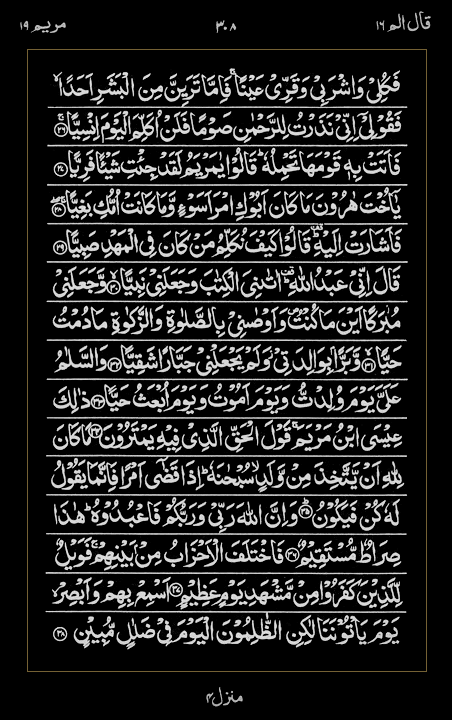 قال الم ١٦
٣٠٨
مريم ١٩
فَكُلِىْ وَاشْرَبِىْ وَقَرِّىْ عَيْنًاۚ فَاِمَّا تَرَيِنَّ مِنَ الْبَشَرِ اَحَدًاۙ
فَقُوْلِىْۤ اِنِّىْ نَذَرْتُ لِلرَّحْمٰنِ صَوْمًا فَلَنْ اُكَلِّمَ الْيَوْمَ اِنْسِيًّاۚ ٢٦
فَاَتَتْ بِهٖ قَوْمَهَا تَحْمِلُهٗؕ قَالُوْا يٰمَرْيَمُ لَقَدْ جِئْتِ شَيْـًٔا فَرِيًّا ٢٧
يٰۤاُخْتَ هٰرُوْنَ مَا كَانَ اَبُوْكِ امْرَاَ سَوْءٍ وَّمَا كَانَتْ اُمُّكِ بَغِيًّا ۖۚ ٢٨
فَاَشَارَتْ اِلَيْهِؕ قَالُوْا كَيْفَ نُكَلِّمُ مَنْ كَانَ فِى الْمَهْدِ صَبِيًّا ٢٩
قَالَ اِنِّىْ عَبْدُ اللّٰهِؕ اٰتٰنِىَ الْكِتٰبَ وَجَعَلَنِىْ نَبِيًّاۙ ٣٠ وَّجَعَلَنِىْ
مُبٰرَكًا اَيْنَ مَا كُنْتُۖ وَاَوْصٰنِىْ بِالصَّلٰوةِ وَالزَّكٰوةِ مَا دُمْتُ
حَيًّاۖ ٣١ وَّبَرًّۢا بِوَالِدَتِىْ وَلَمْ يَجْعَلْنِىْ جَبَّارًا شَقِيًّا ٣٢ وَالسَّلٰمُ
عَلَىَّ يَوْمَ وُلِدْتُّ وَيَوْمَ اَمُوْتُ وَيَوْمَ اُبْعَثُ حَيًّا ٣٣ ذٰلِكَ
عِيْسَى ابْنُ مَرْيَمَۚ قَوْلَ الْحَقِّ الَّذِىْ فِيْهِ يَمْتَرُوْنَ ٣٤ مَا كَانَ
لِلّٰهِ اَنْ يَّتَّخِذَ مِنْ وَّلَدٍۙ سُبْحٰنَهٗؕ اِذَا قَضٰٓى اَمْرًا فَاِنَّمَا يَقُوْلُ
لَهٗ كُنْ فَيَكُوْنُؕ ٣٥ وَاِنَّ اللّٰهَ رَبِّىْ وَرَبُّكُمْ فَاعْبُدُوْهُؕ هٰذَا
صِرَاطٌ مُّسْتَقِيْمٌ ٣٦ فَاخْتَلَفَ الْاَحْزَابُ مِنْۢ بَيْنِهِمْۚ فَوَيْلٌ
لِّلَّذِيْنَ كَفَرُوْا مِنْ مَّشْهَدِ يَوْمٍ عَظِيْمٍ ٣٧ اَسْمِعْ بِهِمْ وَاَبْصِرْۙ
يَوْمَ يَاْتُوْنَنَا لٰكِنِ الظّٰلِمُوْنَ الْيَوْمَ فِىْ ضَلٰلٍ مُّبِيْنٍ ٣٨
منزل ٤